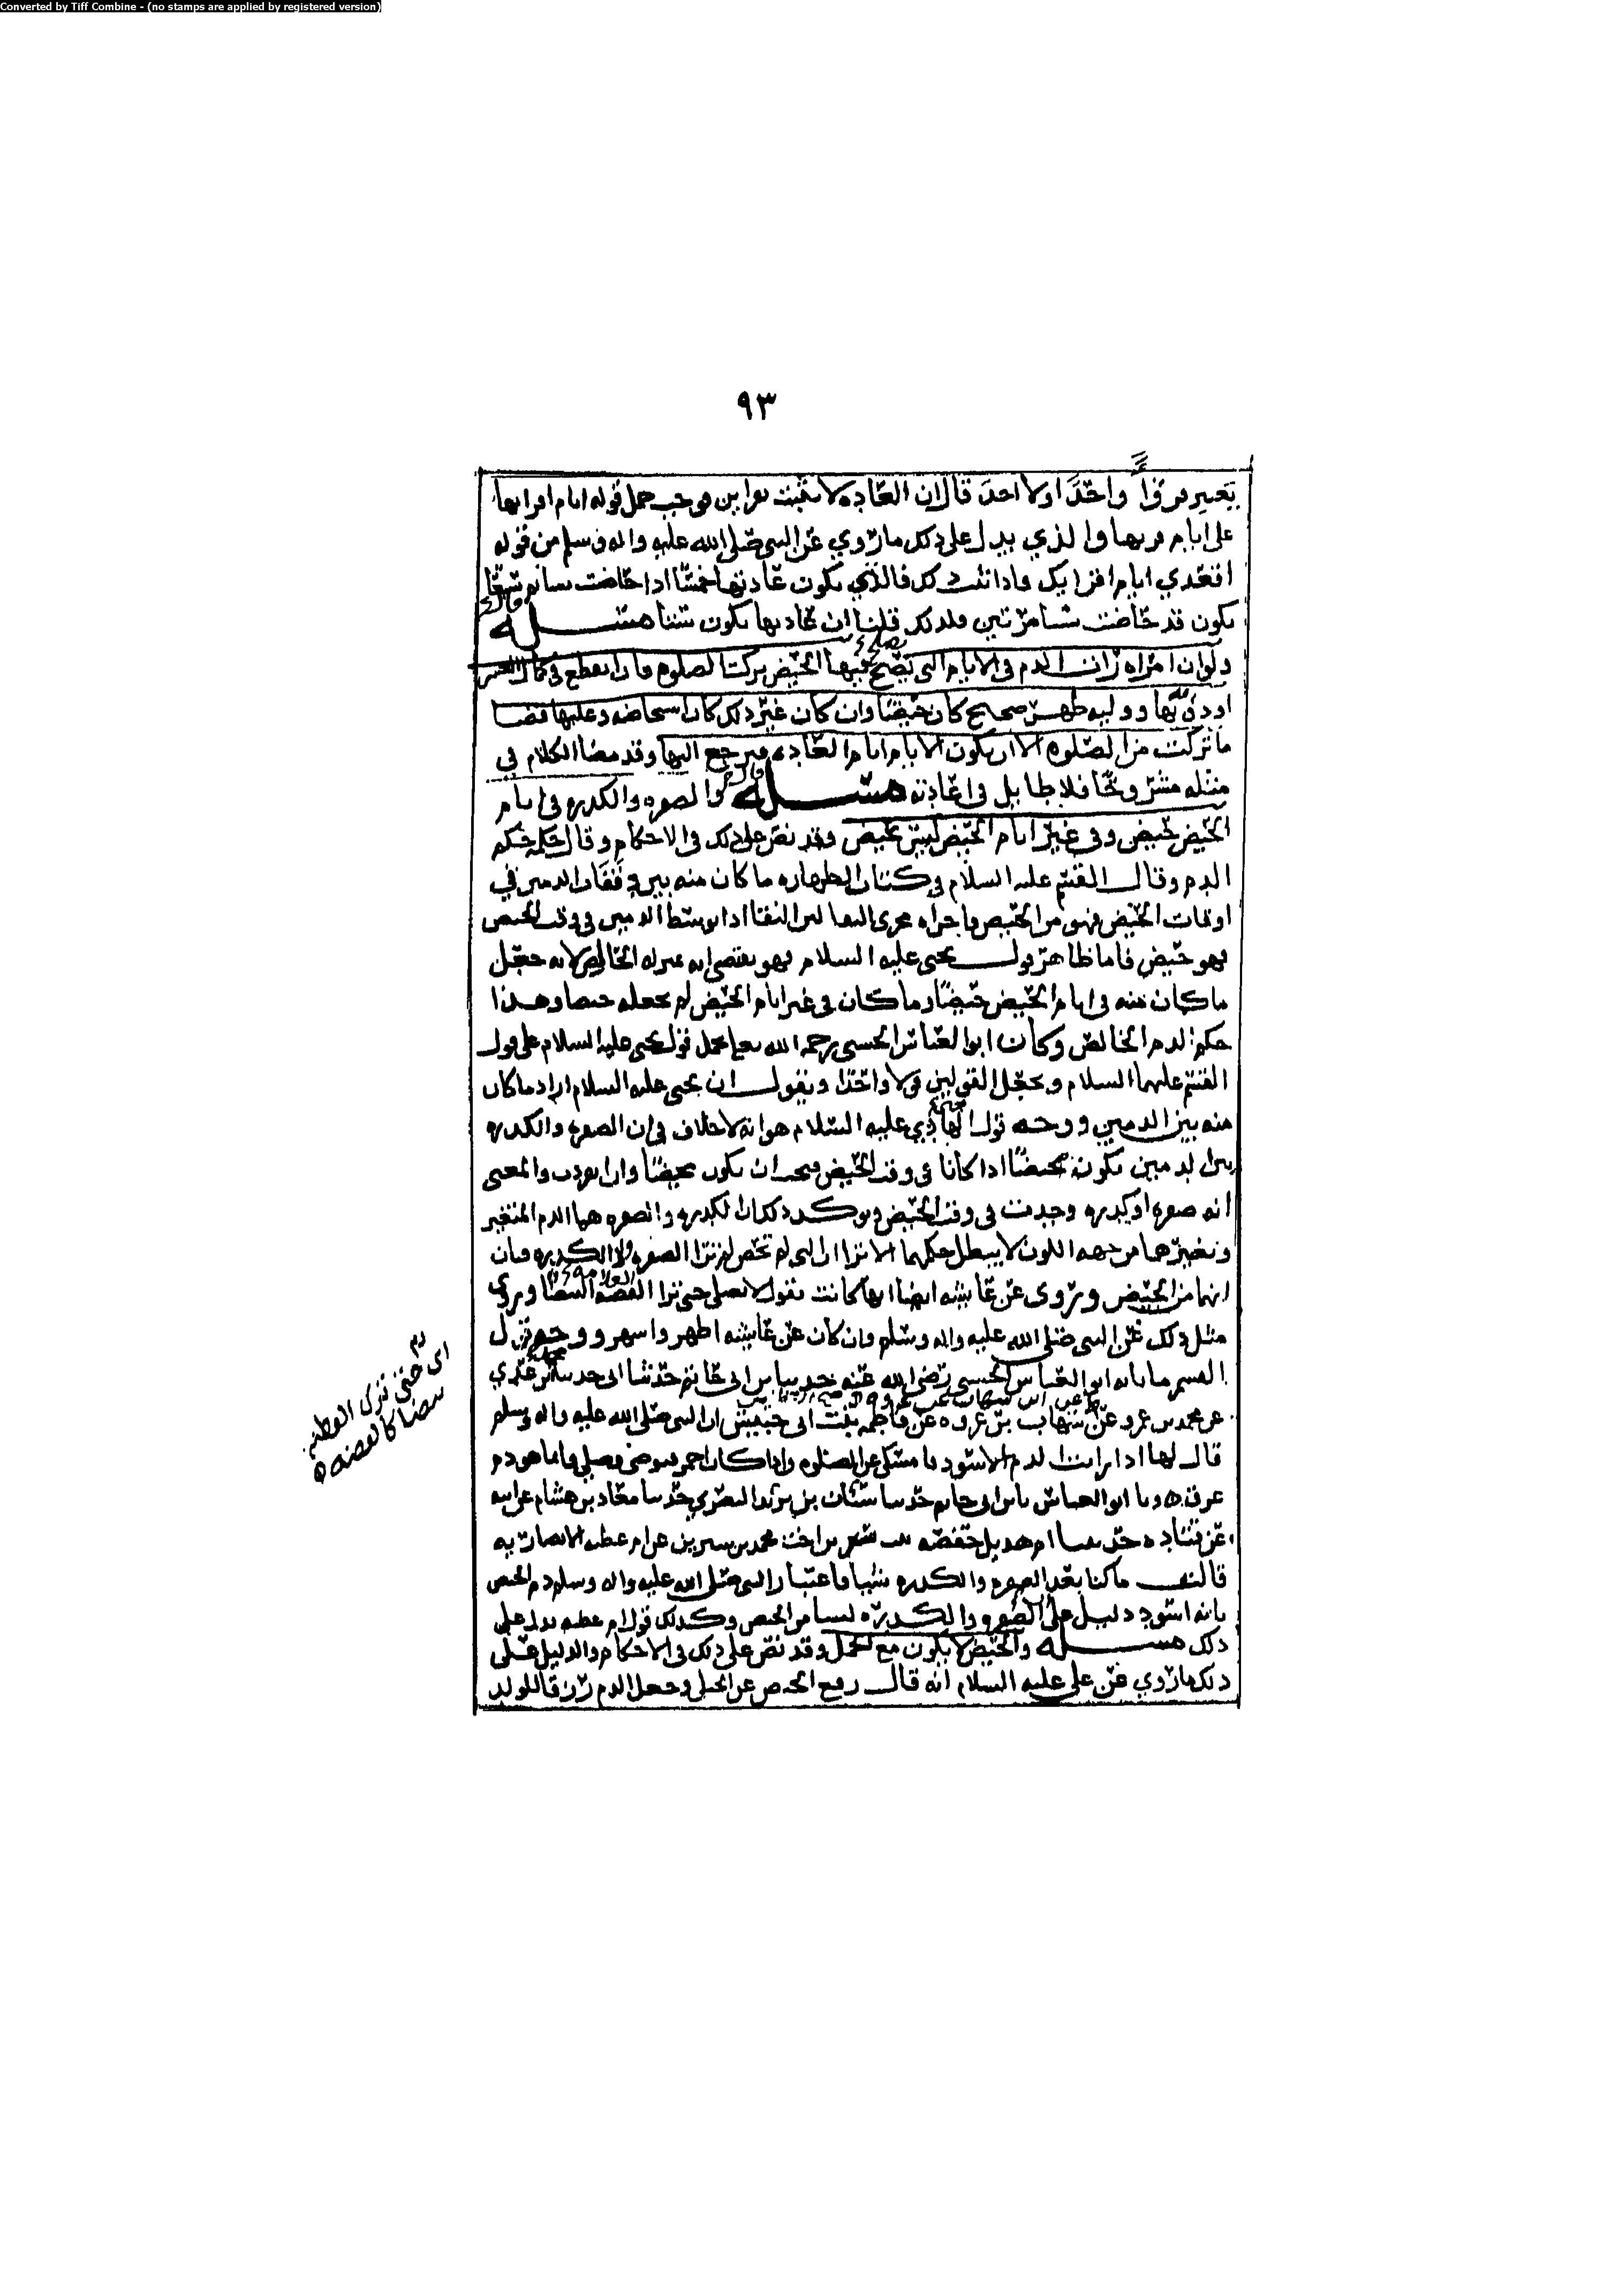 Converted by Tiff Combine - (no stamps are applied by registered version)
٩٣
واحدا اولا احد قال ان العاده لا تثبت فوجب حمل قوله ايام اقرائها
على ايام والذي يدل على ذلك ما روي عن النبي صلى الله عليه واله وسلم من قوله
اقعدي ايام اقرايك فالذي يكون عادتها خمسا اذا حاضت
يكون قد حاضت ستا مرتين ولذلك قلنا ان عادتها يكون ستا مسئله
ولو ان امراه رات الدم في الايام التي يصح فيها الحيض تركت الصلوه فان انقطع في
طهر صحيح كان حيضا وان كان غير ذلك كان استحاضه وعليها قضا
ما تركت من الصلوه الا ان يكون الايام ايام العاده فيرجع اليها وقد مضا الكلام في
مثله مشروحا فلا طايل في اعادته مسئله والصفره والكدره في ايام
الحيض حيض وفي غير ايام الحيض ليس بحيض وقد نص على ذلك في الاحكام وقال حكمه حكم
الدم وقال القسم عليه السلام في كتاب الطهاره ما كان منه بين الدمين في
اوقات الحيض فهو من الحيض فاجراه مجرى النقا لان النقا اذا توسط الدمين في وقت الحيض
فهو حيض فاما ظاهر قول يحيى عليه السلام فهو يقتضي انه بمنزله الخالص لانه جعل
ما كان منه في ايام الحيض حيضا وما كان في غير ايام الحيض لم يجعله حيضا وهذا
حكم الدم الخالص وكان ابو العباس الحسني رحمه الله يحمل قول يحيى عليه السلام على قول
القسم عليهما السلام ويجعل القولين قولا واحدا ويقول ان يحيى عليه السلام اراد ما كان
منه بين الدمين ووجه قول الهادي عليه السلام هو انه لا خلاف في ان الصفره والكدره
بين الدمين يكون حيضا اذا كانا في وقت الحيض فيجب ان يكون حيضا وان والمعنى
انه صفره او كدره وجدت في وقت الحيض ويوكد ذلك ان الكدره والصفره هما الدم المتغير
وتغيرهما من جهه اللون لا يبطل حكمهما الا ترا ان التي لم تحض لم تر الصفره ولا الكدره فبان
انهما من الحيض وروي عن عايشه ايضا انها كانت تقول لا تصلي حتى ترا القصه البيضا وروي
مثل ذلك عن النبي صلى الله عليه واله وسلم وان كان عن عايشه اظهر واشهر ووجه قول
القسم ما ابو العباس الحسني رضي الله عنه ابن ابي حاتم حدثنا ابي حدثنا عدي
عن محمد بن عمرو عن شهاب عن عروه عن فاطمه بنت ابي حبيش ان النبي صلى الله عليه واله وسلم
قال لها اذا رايت الدم الاسود فامسكي عن الصلوه واذا كان احمر فتوضي وصلي فانما هو دم
عرق ابو العباس ابن ابي حاتم حدثنا البصري حدثنا معاذ بن هشام عن ابيه
عن قتاده ام هذيل حفصه اخت محمد بن سيرين عن ام عطيه الانصاريه
قالت ما كنا نعد الصفره والكدره شيا فاعتبار النبي صلى الله عليه واله وسلم دم الحيض
بانه اسود دليل على ان الصفره والكدره ليسا من الحيض وكذلك قول ام عطيه يدل على
ذلك مسئله والحيض لا يكون مع الحمل وقد نص على ذلك في الاحكام والدليل على
ذلك ما روي عن علي عليه السلام انه قال رفع الحيض عن الحبلى وجعل الدم رزقا للولد
اي حتى ترى القطنه
بيضا كالفضه